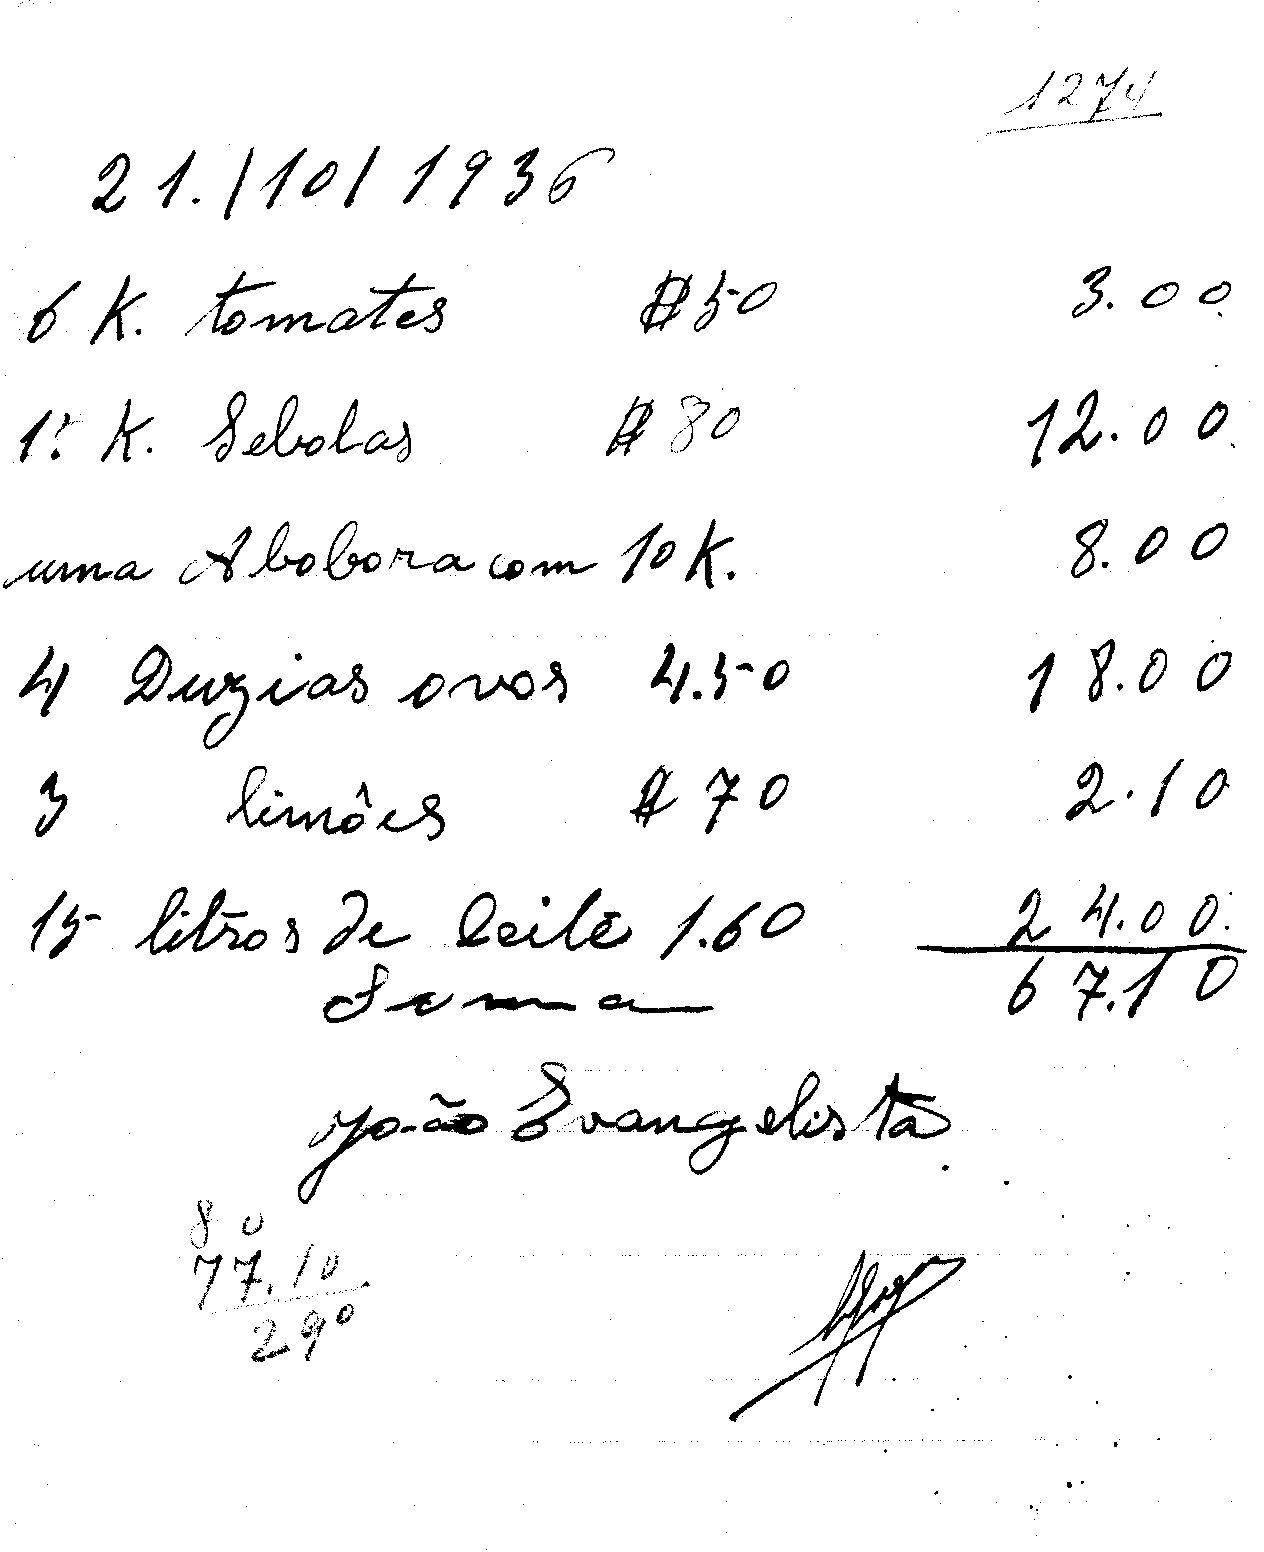 1274
21./10/1936
6 K. tomates $50 3.00
15 K. Sebolas $80 12.00
uma Abobora com 10 K. 8.00
4 Duzias ovos 4.50 18.00
3 limões $70 2.10
15 litros de leite 1.60 24.00
Suma 67.10
João Evangelista
80
77.10
290